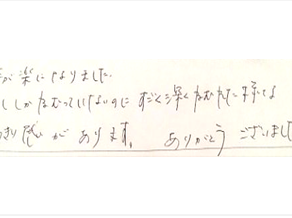 が楽になりました。
しかねむっていないのにすごく深くねむれた様な
感じがあります。ありがとうございました